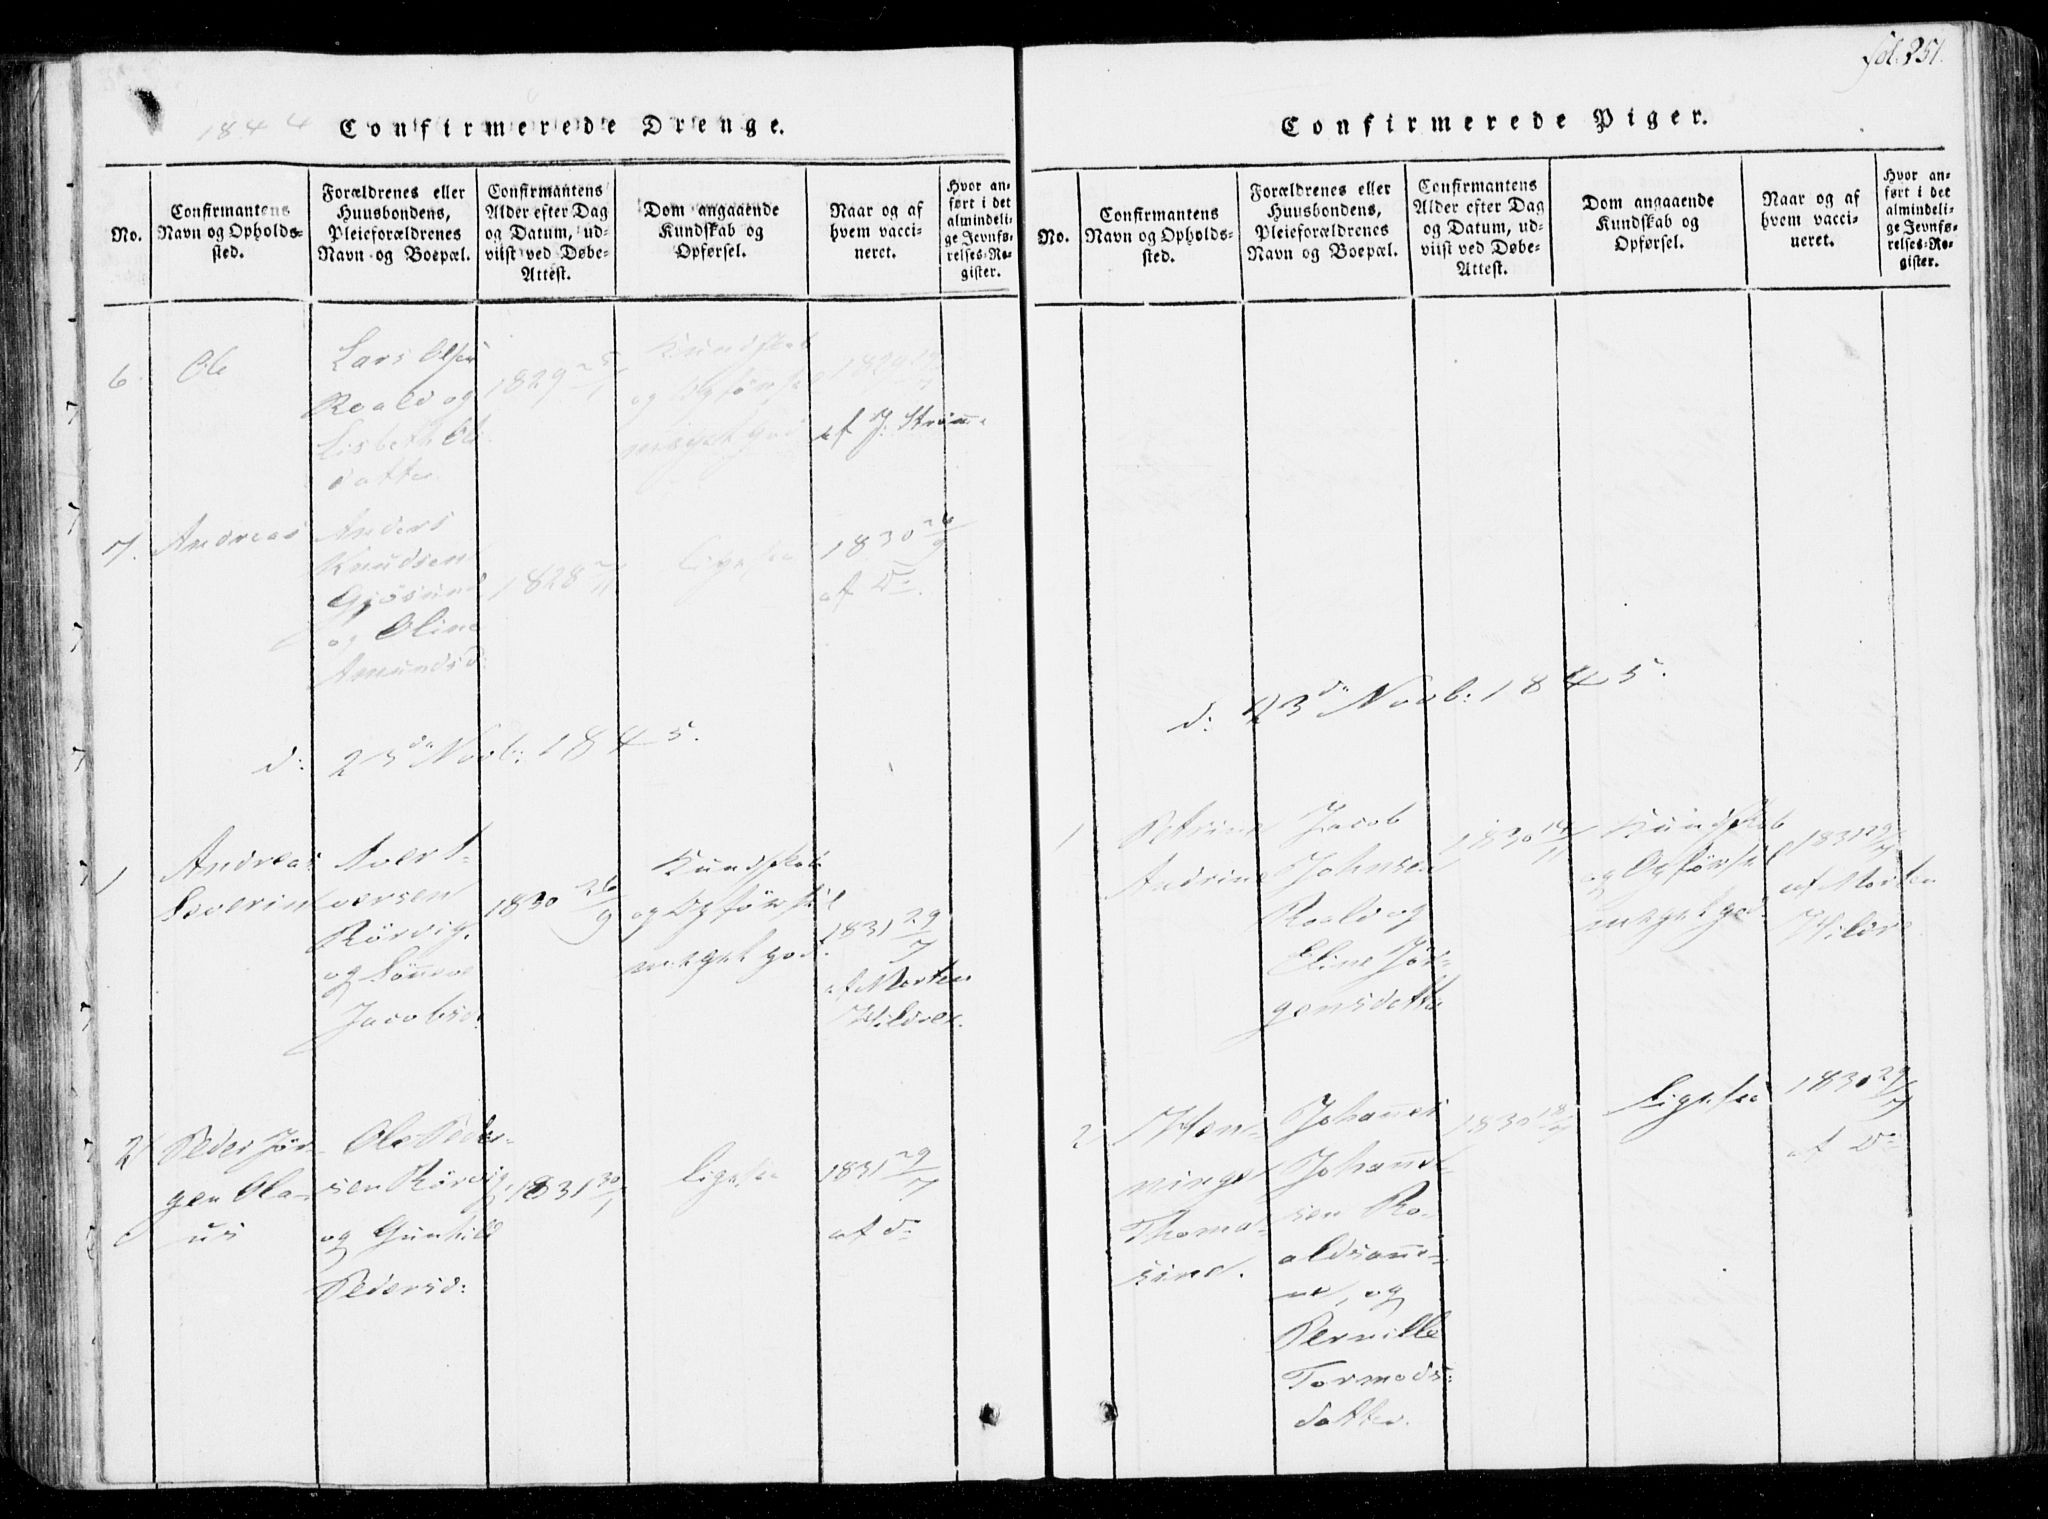 fol. 251.
1844
Confirmerede Drenge.
No.
Confirmantens
Navn og Opholds-
sted.
Forældrenes eller
Huusbondens,
Pleieforældrenes
Navn og Boepæl.
Confirmantens
Alder efter Dag
og Datum, ud-
viist ved Døbe-
Attest.
Dom angaaende
Kundskab og
Opførsel.
Naar og af
hvem vacci-
neret.
Hvor an-
ført i det
almindeli-
ge Jevnfø-
relses-Re-
gister.
6.
Ole
Lars Olsen
Roald og
Lisbeth Ols
datter.
1829
Kundskab
og Opførsel
meget god
1829
af J. Strøm
7.
Andreas
Anders
Knudsen
Gjøsund
og Oline
Amundsd:
1828
Ligesaa
1830 26/9
af Do.
d: 23de Novb: 1845.
1
Andreas
Severin
Iver I-
versen
Rörvig.
og
Jacobsd.
1830 26/9
Kundskab
og Opførsel
meget god.
1831 29/7
af Morten
Hildres.
2
Peder Jör-
gen Ola-
us
Ole Peder-
sen Rörvig
og Gunhild
Pedersd:
1831 30/1
Ligesaa
1831 29/7
af do
Confirmerede Piger.
No.
Confirmantens
Navn og Opholds-
sted.
Forældrenes eller
Huusbondens,
Pleieforældrenes
Navn og Boepæl.
Confirmantens
Alder efter Dag
og Datum, ud-
viist ved Døbe-
Attest.
Dom angaaende
Kundskab og
Opførsel.
Naar og af
hvem vacci-
neret.
Hvor an-
ført i det
almindeli-
ge Jevnfø-
relses-Re-
gister.
d: 23de Novb: 1845.
1
Petrine
Andrine
Jacob
Johnsen
Roald og
Eline Jör-
gensdatter
1830 14/11
Kundskab
og Opførsel
meget god.
1831 29/7
af Morten
Hildre
2
Hen-
ninge
Thoma-
sine.
Johannes
Johannes-
sen Ro-
aldsan-
ne, og
Pernille
Tormods-
datter.
1830
Ligesaa
1830 29/7
af Do